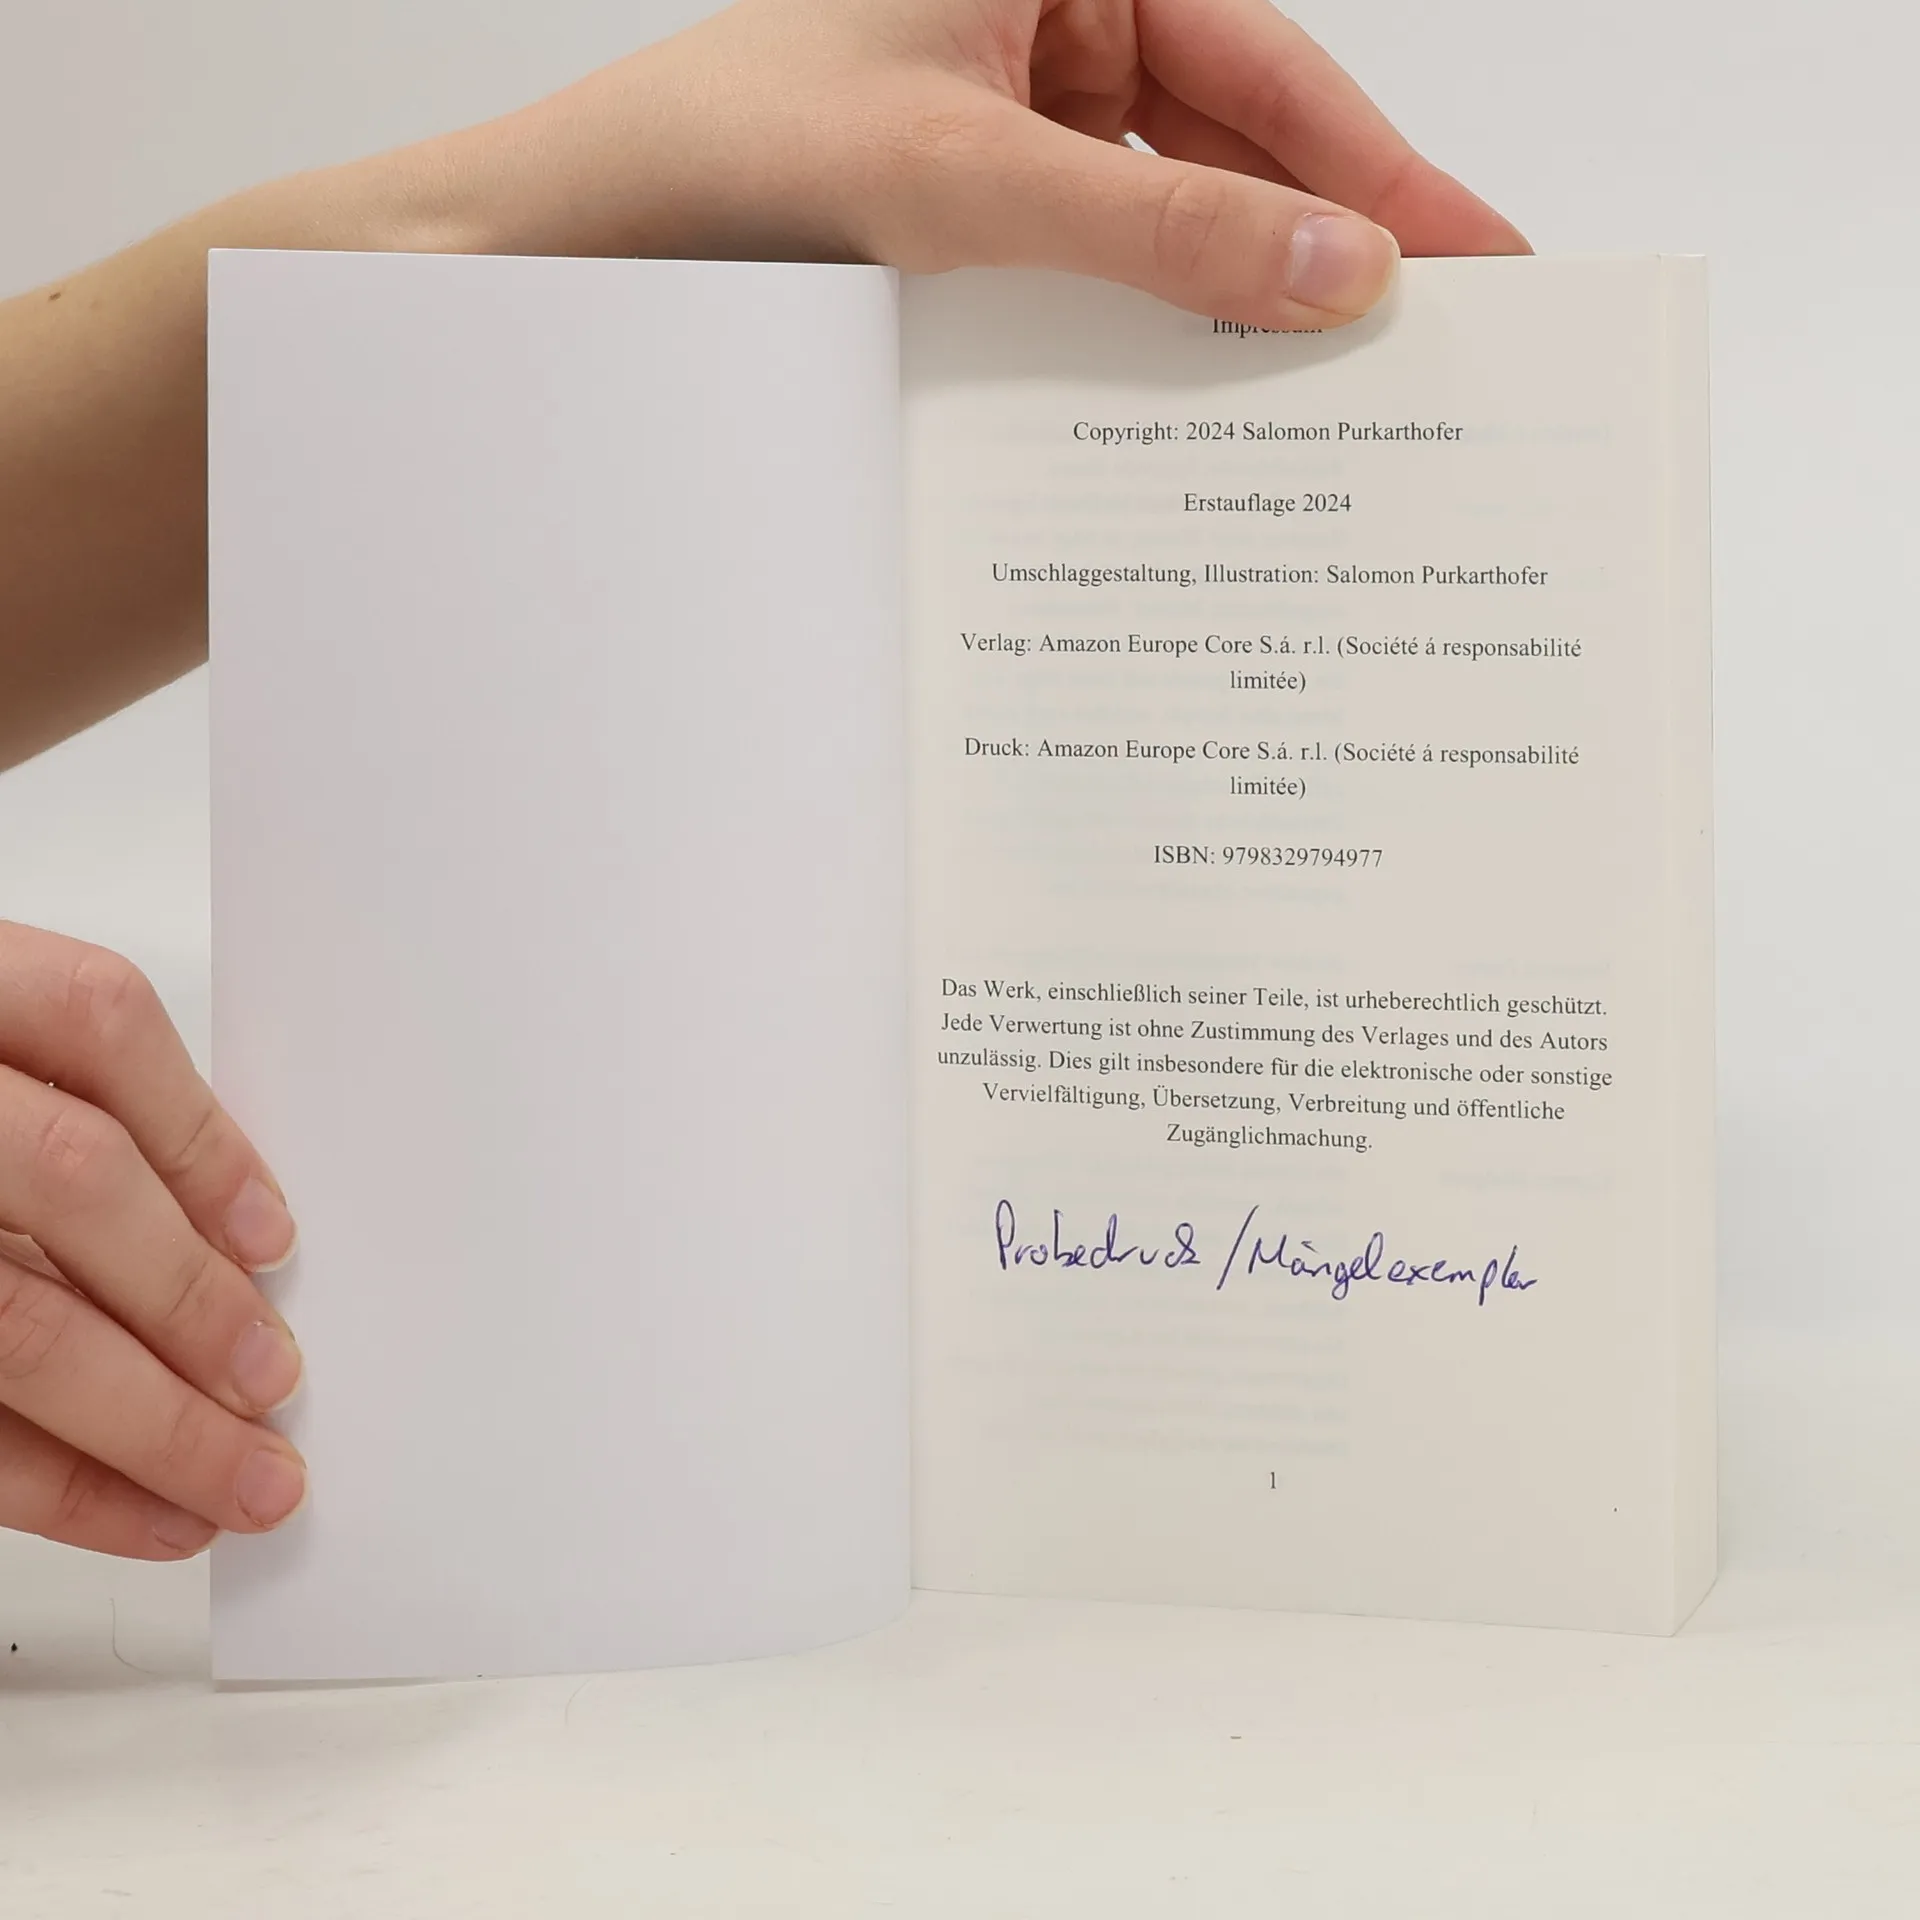 Impressum
Copyright: 2024 Salomon Purkarthofer
Erstauflage 2024
Umschlaggestaltung, Illustration: Salomon Purkarthofer
Verlag: Amazon Europe Core S.á. r.l. (Société á responsabilité
limitée)
Druck: Amazon Europe Core S.á. r.l. (Société á responsabilité
limitée)
ISBN: 9798329794977
Das Werk, einschließlich seiner Teile, ist urheberechtlich geschützt.
Jede Verwertung ist ohne Zustimmung des Verlages und des Autors
unzulässig. Dies gilt insbesondere für die elektronische oder sonstige
Vervielfältigung, Übersetzung, Verbreitung und öffentliche
Zugänglichmachung.
Probedruck / Mängelexemplar
1